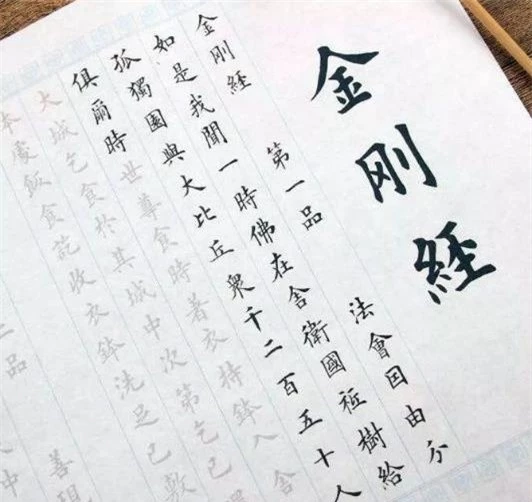 金刚経
金刚経 第一品 法會因由分
如是我聞一時佛在舍衛國祇樹給
孤獨園與大比丘衆千二百五十人
俱爾時世尊食時著衣持鉢入舍
大城乞食於其城中次第乞已
本處飯食訖收衣鉢洗足已敷
二品 善現
中